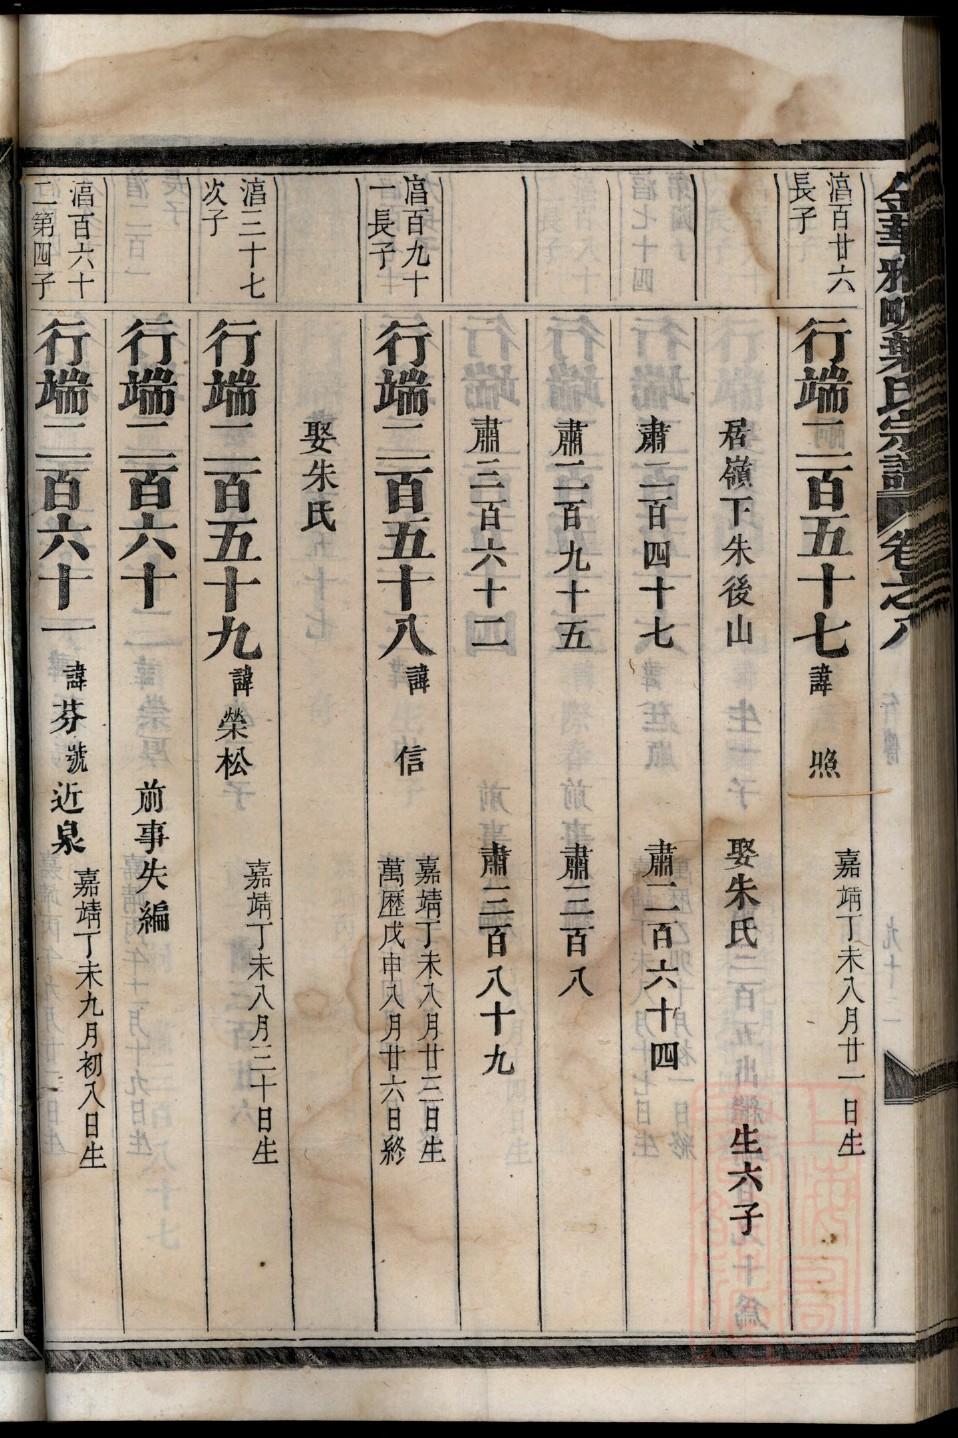 金華雅畈葉氏宗譜 卷之八
滀百廿六
長子
行端二百五十七 諱 照 嘉靖丁未八月廿一日生
居嶺下朱後山 娶朱氏二百五 生六子
肅二百四十七 肅二百六十四
肅二百九十五 肅三百八
肅三百六十二 肅三百八十九
滀百九十
一長子
行端二百五十八 諱 信 嘉靖丁未八月廿三日生
萬歷戊申八月廿六日終
娶朱氏
滀三十七
次子
行端二百五十九 諱榮松 嘉靖丁未八月三十日生
行端二百六十 前事失編
滀百六十
二第四子
行端二百六十一 諱芬號近泉 嘉靖丁未九月初八日生